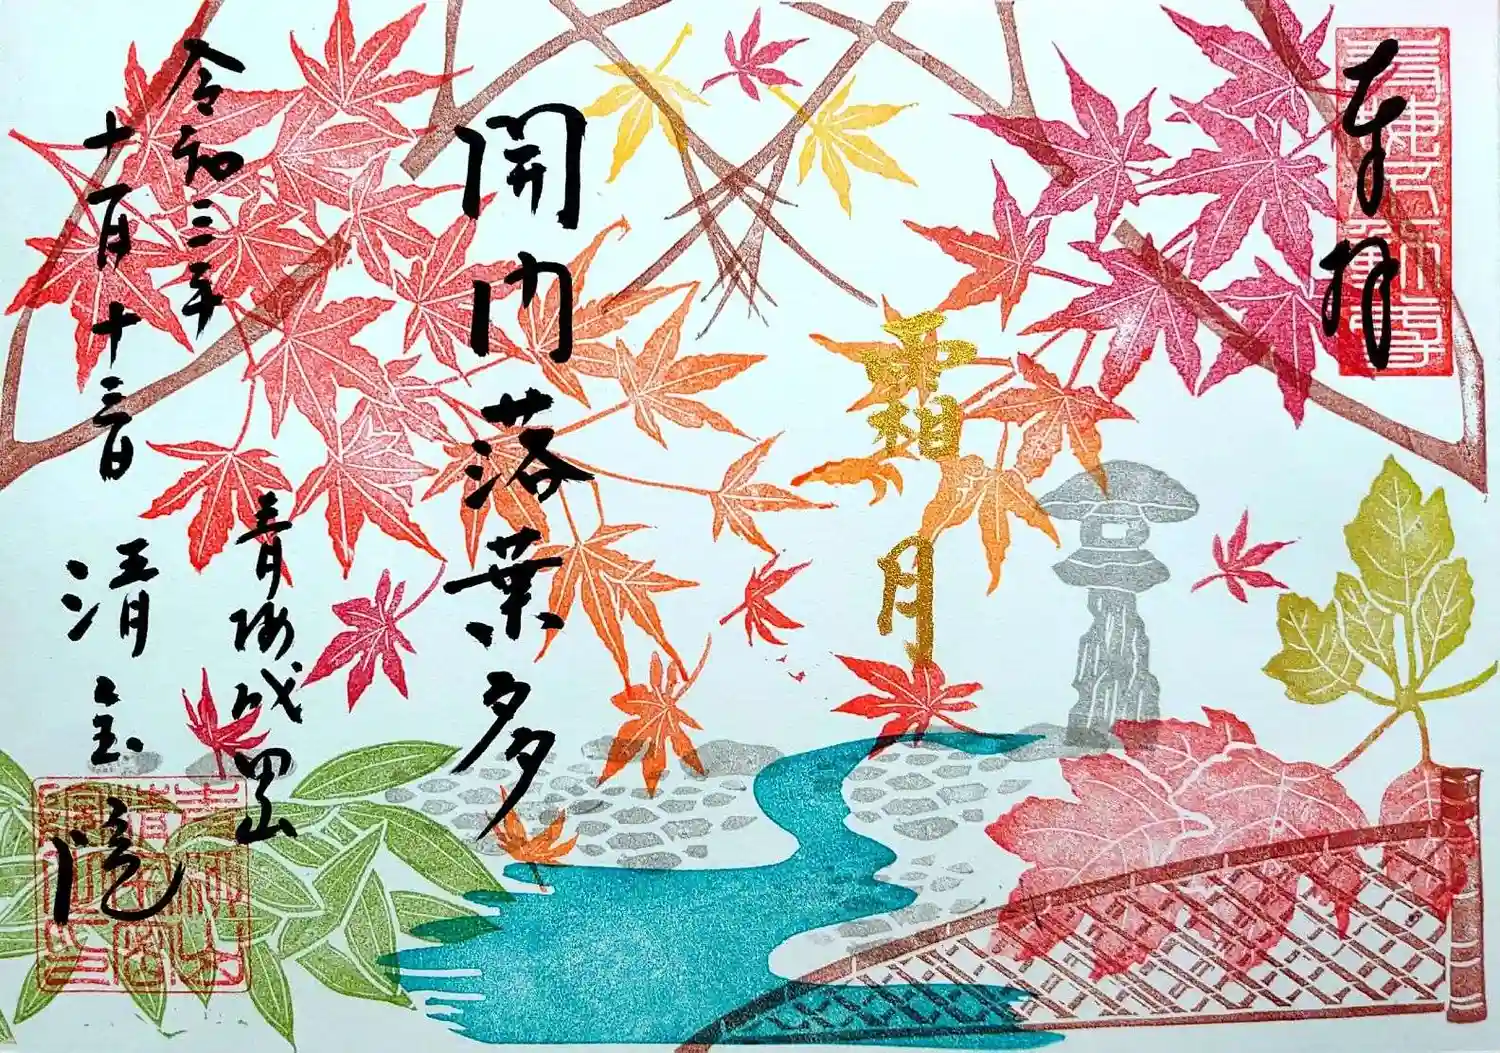 奉拝
霜月
開門落葉多
令和三年
十一月十三日
青梅成田山
清宝院